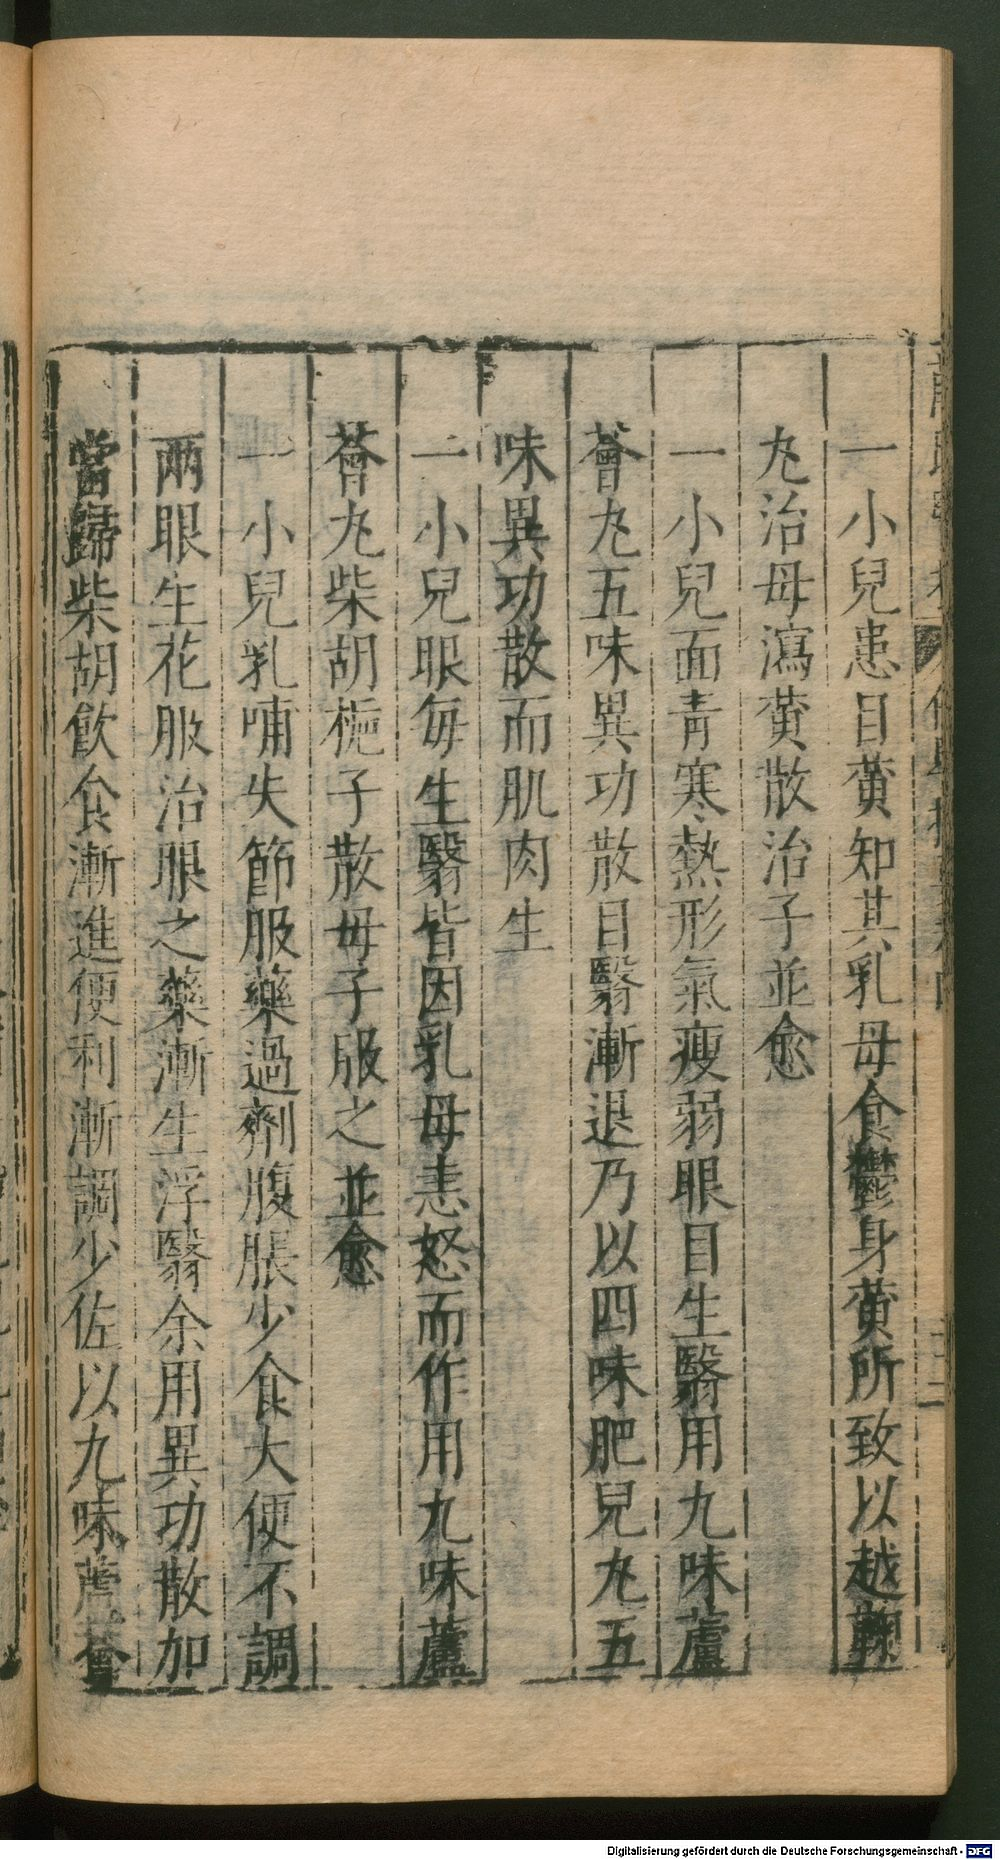 一小兒患目黄知其乳母食鬱身黄所致以越鞠
𠀋治母瀉黄散治子並愈
一小兒面青寒熱形氣瘦弱眼目生翳用九味蘆
薈𠀋五味異功散目翳漸退乃以四味肥兒𠀋五
味異功散而肌肉生
一小兒眼每生翳皆因乳母恚怒而作用九味蘆
薈𠀋柴胡梔子散母子服之並愈
一小兒乳哺失節服藥過劑腹脹少食大便不調
两眼生花服治眼之藥漸生浮翳余用異功散加
當歸柴胡飲食漸進便利漸調少佐以九味蘆薈
Digitalisierung gefördert durch die Deutsche Forschungsgemeinschaft - DFG